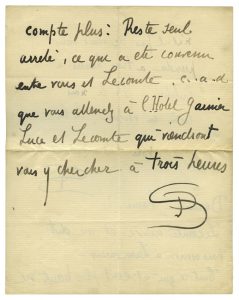 compte plus: Reste seul
arrêté, ce que a été convenu
entre vous et Lecomte. c.a.d
que vous attendez à l'Hotel Garnier
Luce et Lecomte qui viendront
vous y chercher à trois heures